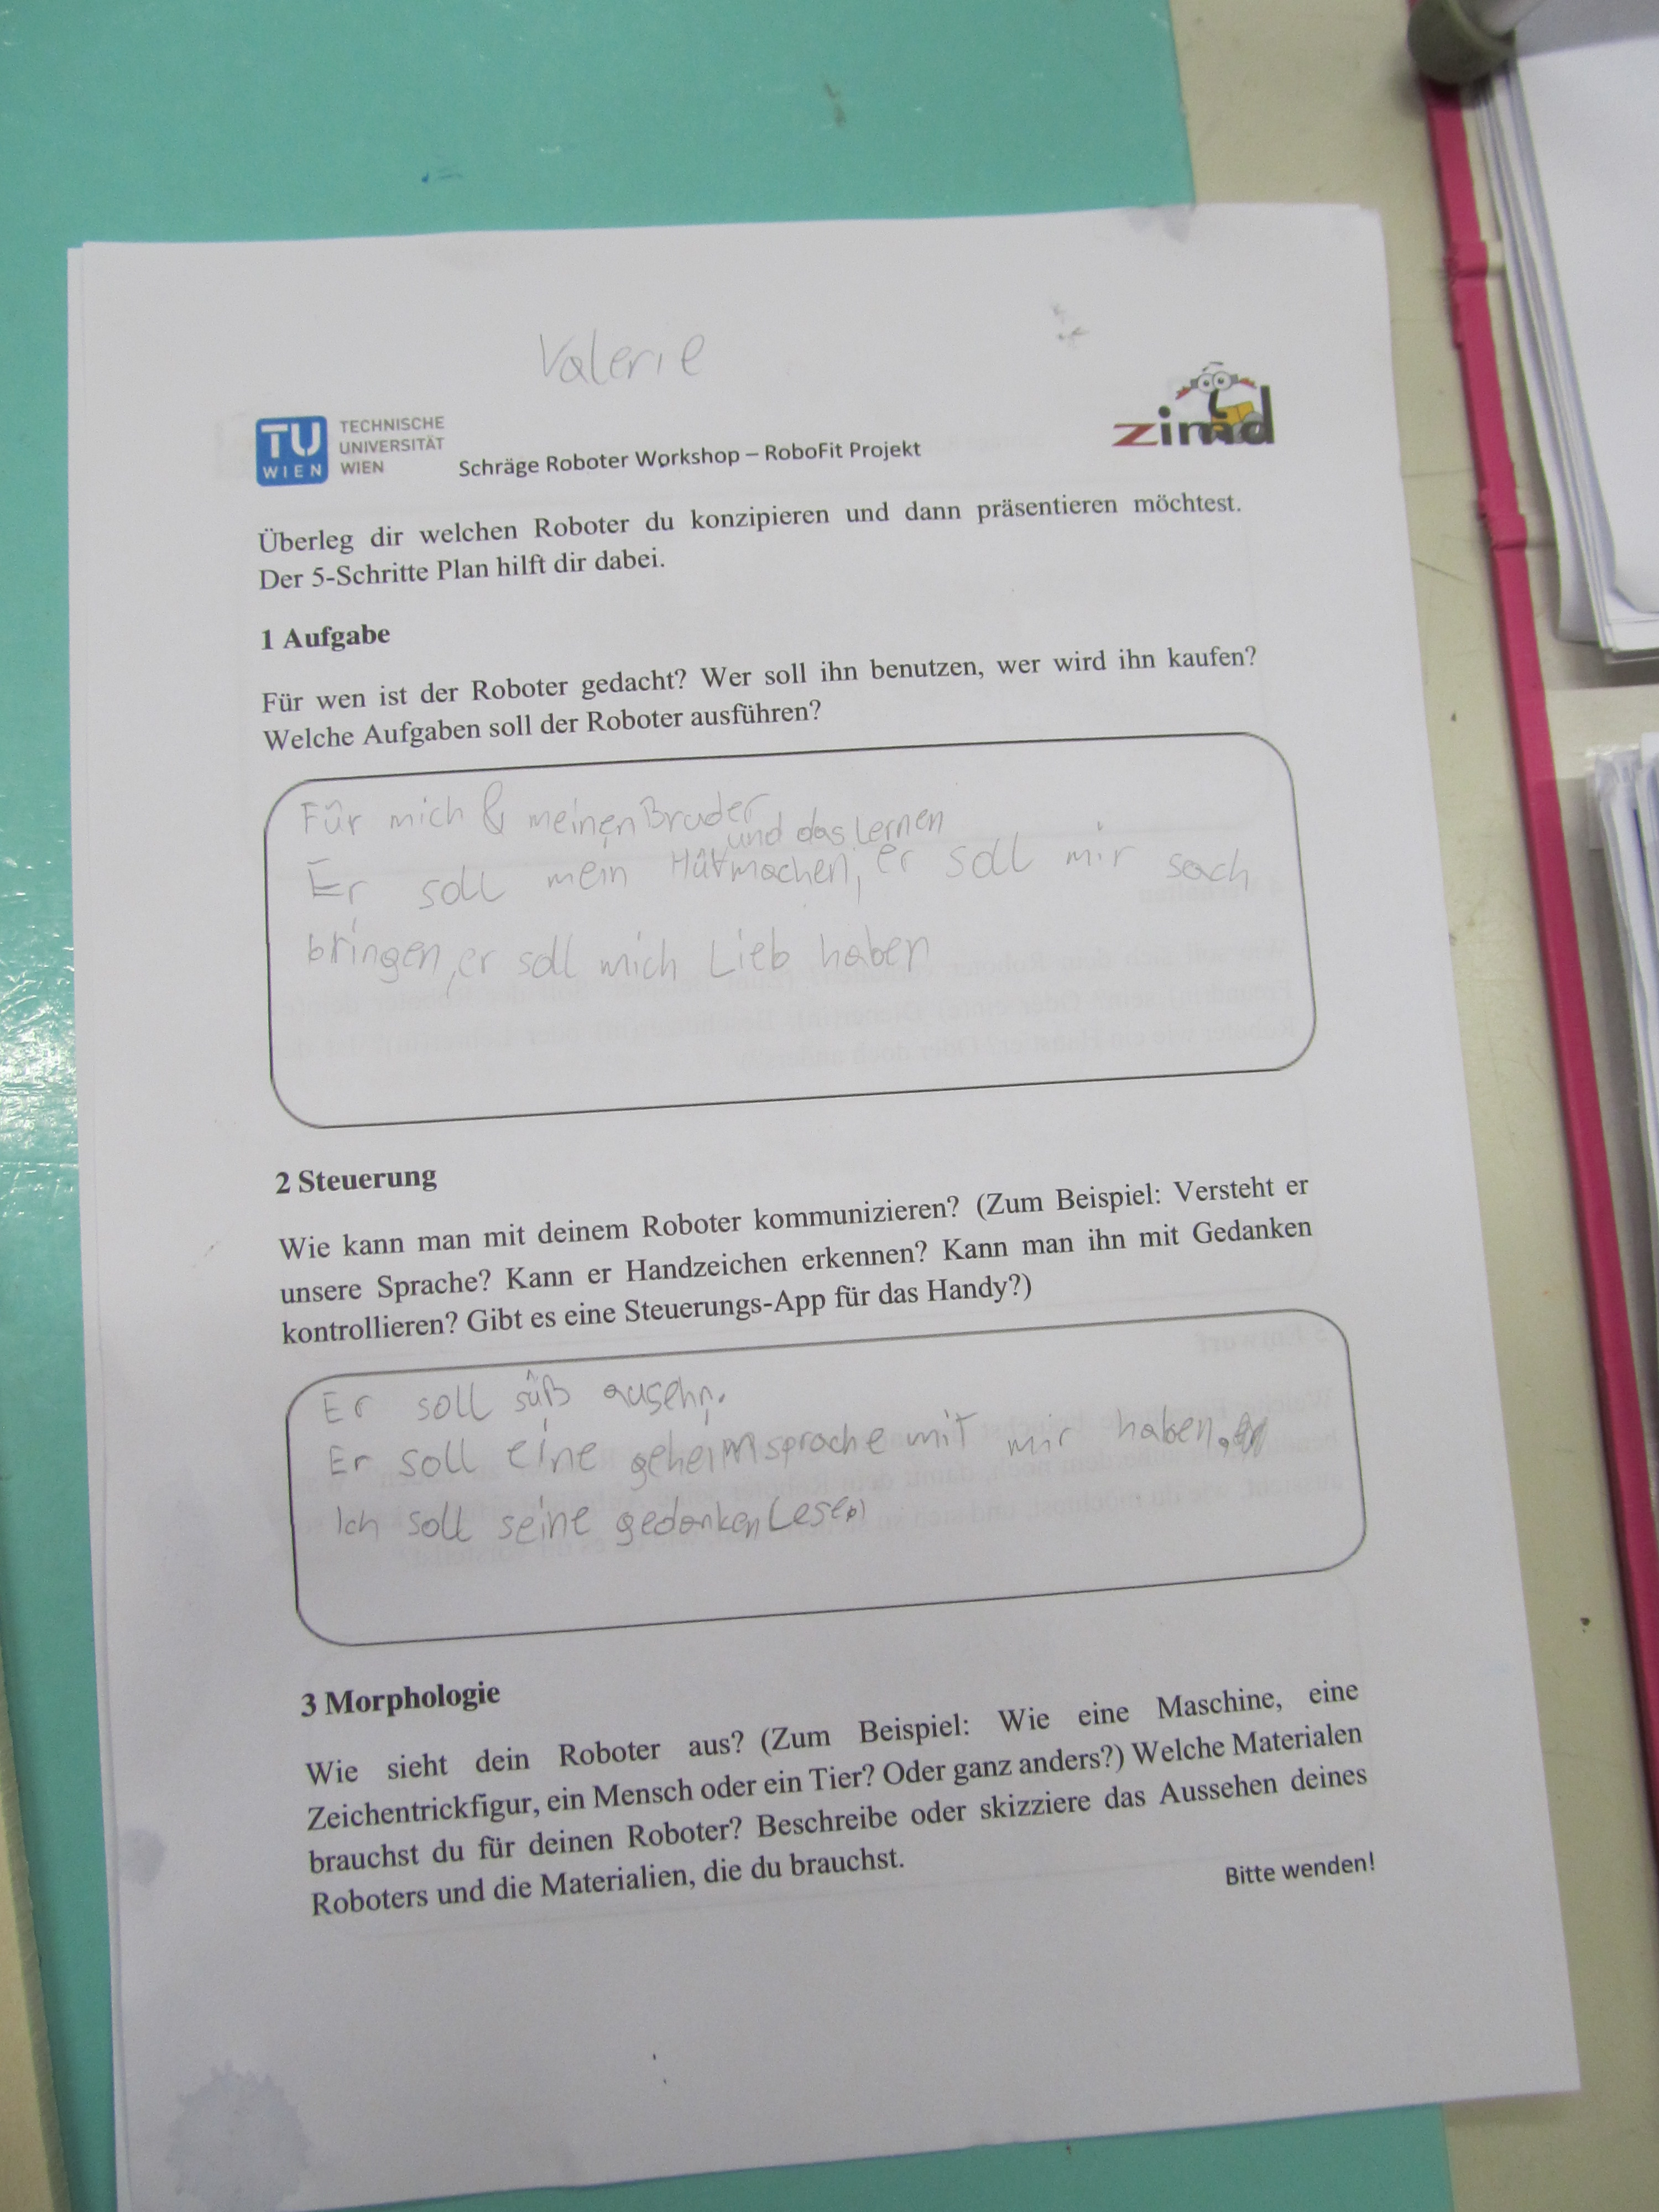 Valerie
TU WIEN
TECHNISCHE
UNIVERSITÄT
WIEN
Schräge Roboter Workshop – RoboFit Projekt
zimd
Überleg dir welchen Roboter du konzipieren und dann präsentieren möchtest.
Der 5-Schritte Plan hilft dir dabei.
1 Aufgabe
Für wen ist der Roboter gedacht? Wer soll ihn benutzen, wer wird ihn kaufen?
Welche Aufgaben soll der Roboter ausführen?
Für mich & meinen Bruder
und das Lernen
Er soll mein HÜ machen, er soll mir sach
bringen, er soll mich Lieb haben
2 Steuerung
Wie kann man mit deinem Roboter kommunizieren? (Zum Beispiel: Versteht er
unsere Sprache? Kann er Handzeichen erkennen? Kann man ihn mit Gedanken
kontrollieren? Gibt es eine Steuerungs-App für das Handy?)
Er soll süß ausehn.
Er soll eine geheimsprache mit mir haben.
Ich soll seine gedanken Lesen
3 Morphologie
Wie sieht dein Roboter aus? (Zum Beispiel: Wie eine Maschine, eine
Zeichentrickfigur, ein Mensch oder ein Tier? Oder ganz anders?) Welche Materialen
brauchst du für deinen Roboter? Beschreibe oder skizziere das Aussehen deines
Roboters und die Materialien, die du brauchst.
Bitte wenden!